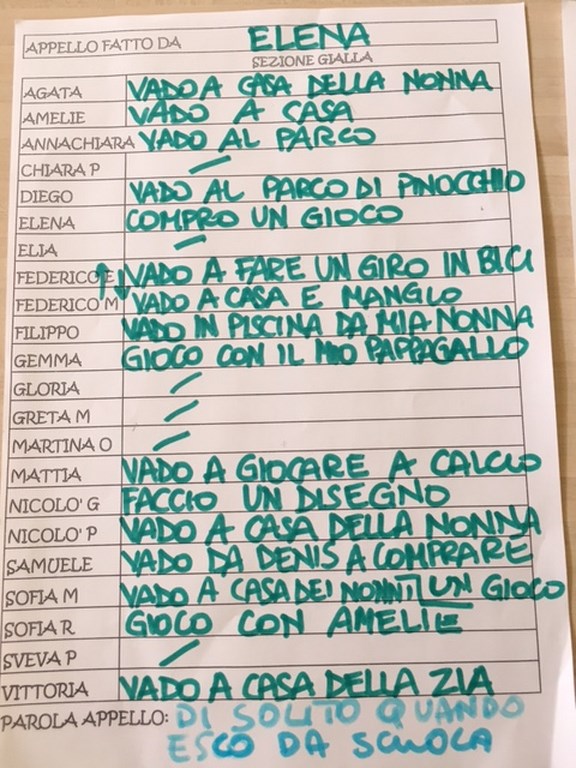 APPELLO FATTO DA ELENA
SEZIONE GIALLA
AGATA VADO A CASA DELLA NONNA
AMELIE VADO A CASA
ANNACHIARA VADO AL PARCO
CHIARA P /
DIEGO VADO AL PARCO DI PINOCCHIO
ELENA COMPRO UN GIOCO
ELIA /
FEDERICO ↑↓ VADO A FARE UN GIRO IN BICI
FEDERICO M VADO A CASA E MANGIO
FILIPPO VADO IN PISCINA DA MIA NONNA
GEMMA GIOCO CON IL MIO PAPPAGALLO
GLORIA /
GRETA M /
MARTINA O /
MATTIA VADO A GIOCARE A CALCIO
NICOLO' G FACCIO UN DISEGNO
NICOLO' P VADO A CASA DELLA NONNA
SAMUELE VADO DA DENIS A COMPRARE
SOFIA M VADO A CASA DEI NONNI UN GIOCO
SOFIA R GIOCO CON AMELIE
SVEVA P /
VITTORIA VADO A CASA DELLA ZIA
PAROLA APPELLO: DI SOLITO QUANDO
ESCO DA SCUOLA